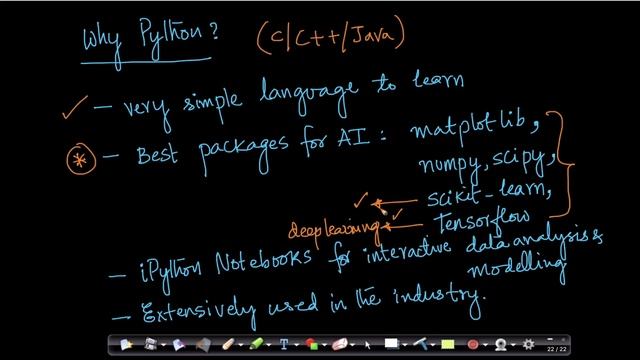 Why Python? (C/C++/Java)
✓ - very simple language to learn
* - Best packages for AI: matplotlib,
numpy, scipy,
✓ ← scikit-learn,
deeplearning ✓ ← Tensorflow
- iPython Notebooks for interactive data analysis &
modelling
- Extensively used in the industry.
22 / 22